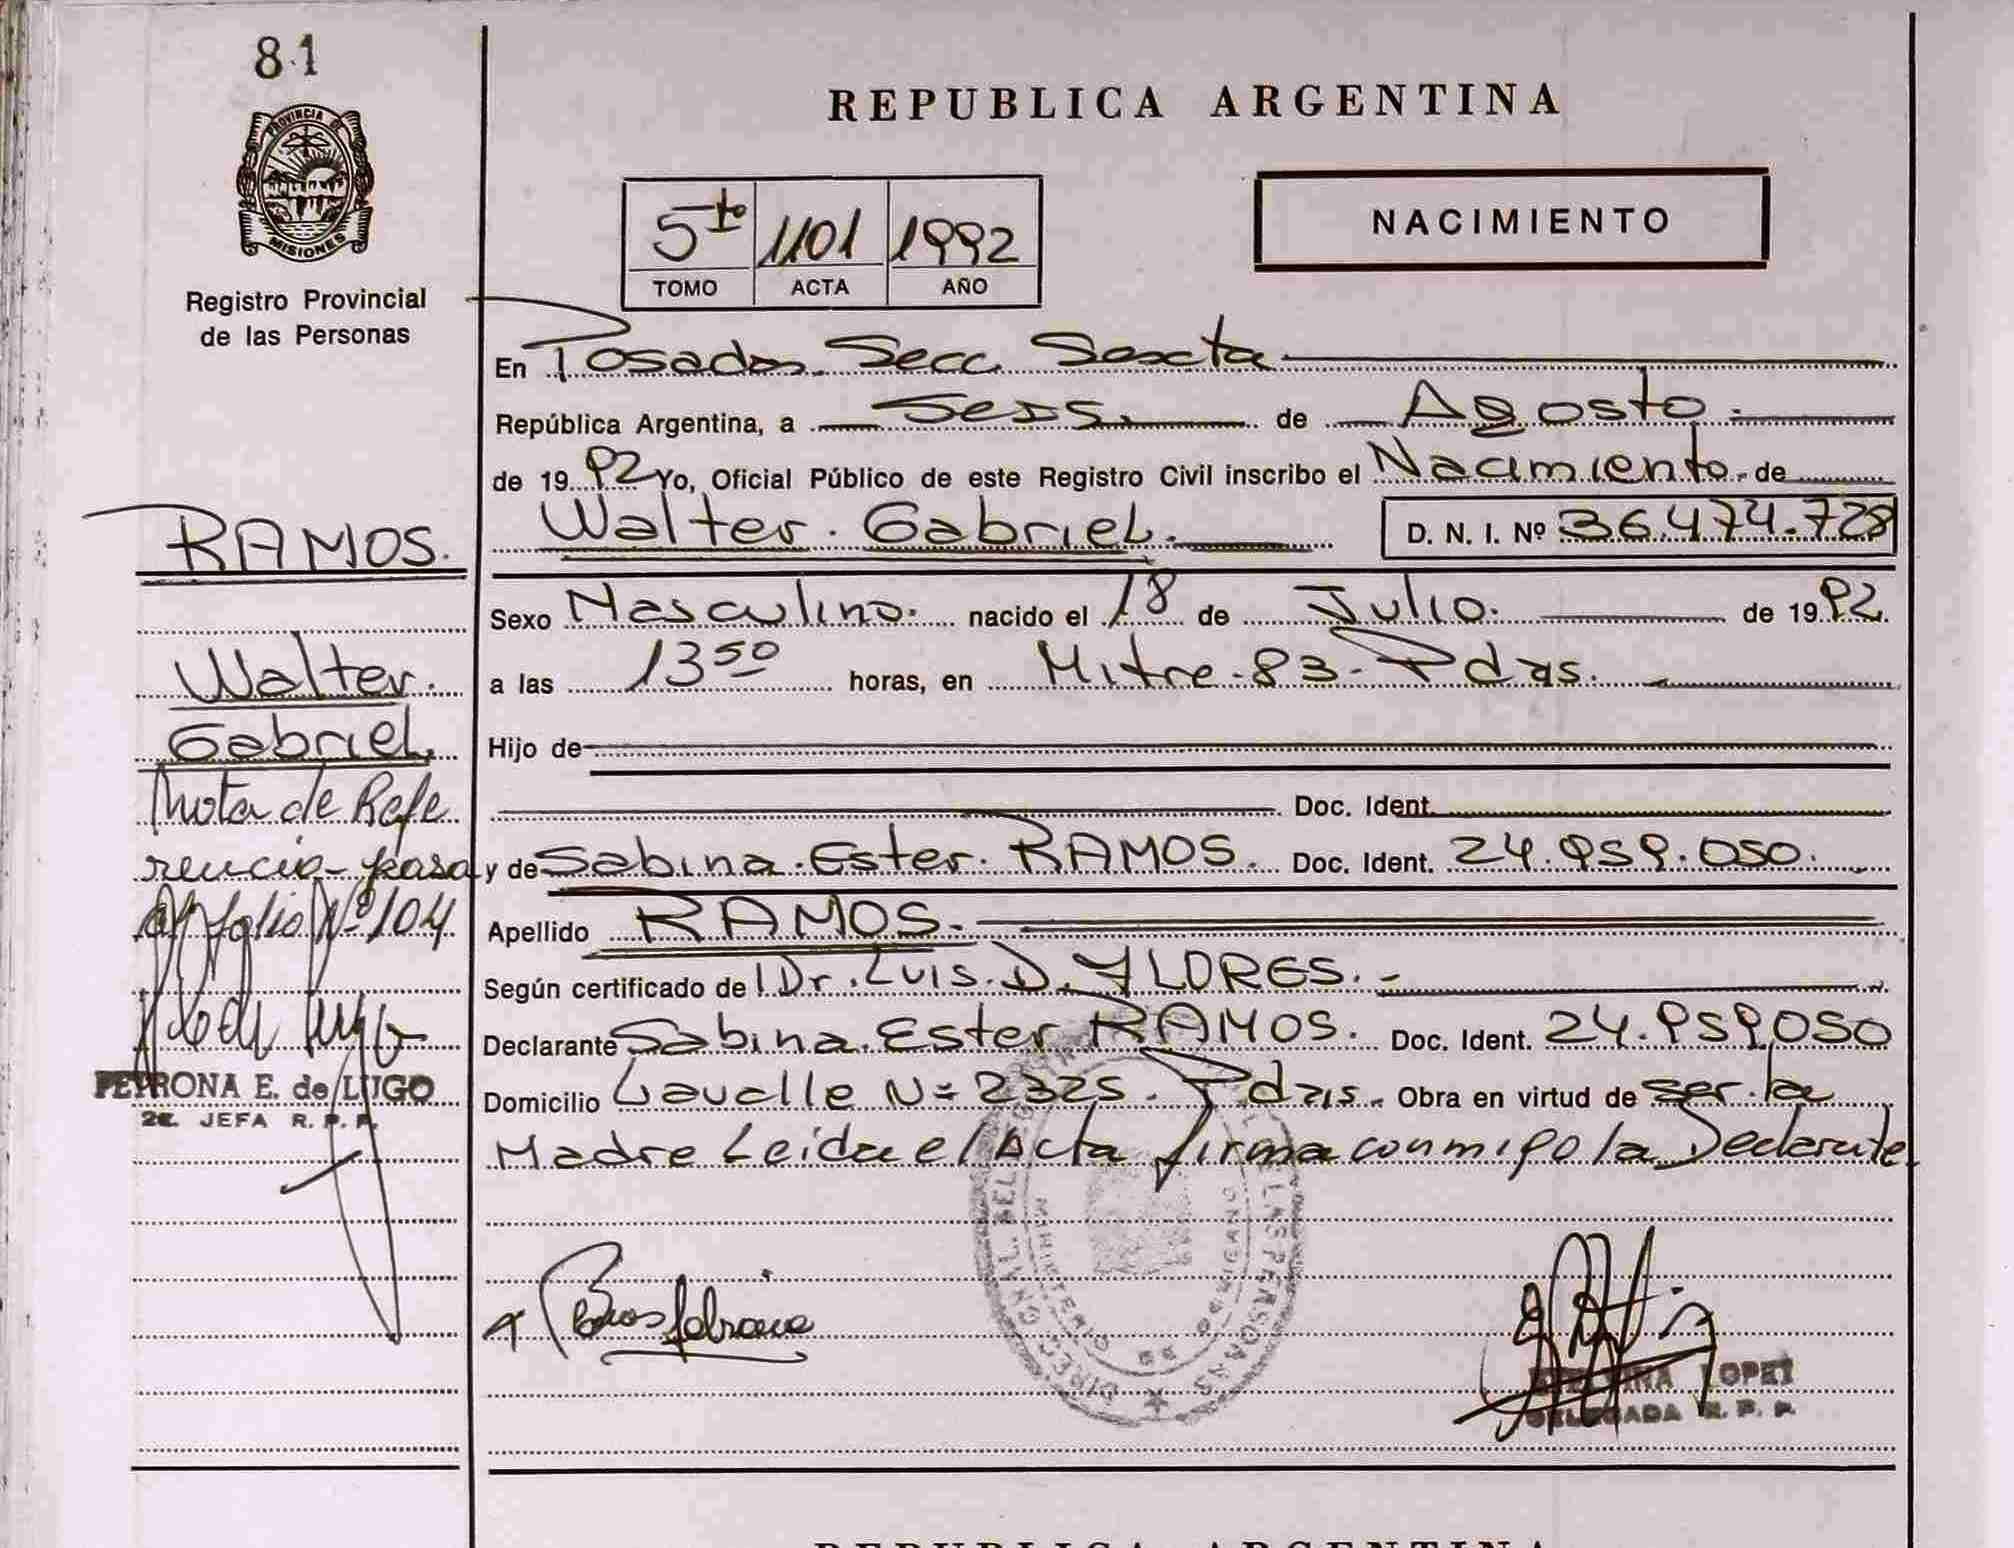 81
PROVINCIA DE
MISIONES
Registro Provincial
de las Personas
REPUBLICA ARGENTINA
5to 1101 1992
TOMO ACTA AÑO
NACIMIENTO
En Posadas. Secc. Sexta
República Argentina, a Seis. de Agosto.
de 1992 Yo, Oficial Público de este Registro Civil inscribo el Nacimiento. de
Walter. Gabriel. D. N. I. Nº 36.474.728
Sexo Masculino. nacido el 18 de Julio. de 1992.
a las 13 50 horas, en Mitre - 83 - Pdas.
Hijo de
Doc. Ident.
y de Sabina. Ester. RAMOS. Doc. Ident. 24.959.050.
Apellido RAMOS.
Según certificado de Dr. Luis. D. FLORES. -
Declarante Sabina. Ester RAMOS. Doc. Ident. 24.959.050
Domicilio Lavalle Nº 2325. Pdas. Obra en virtud de ser la
Madre Leída el Acta firma conmigo la Declarante.
RAMOS.
Walter.
Gabriel.
Nota de Refe
rencia - pasa
al folio Nº 104
PETRONA E. de LUGO
2a. JEFA R. P. P.
MINISTERIO DE GOBIERNO
LOPEZ
DELEGADA R. P. P.
REPUBLICA ARGENTINA